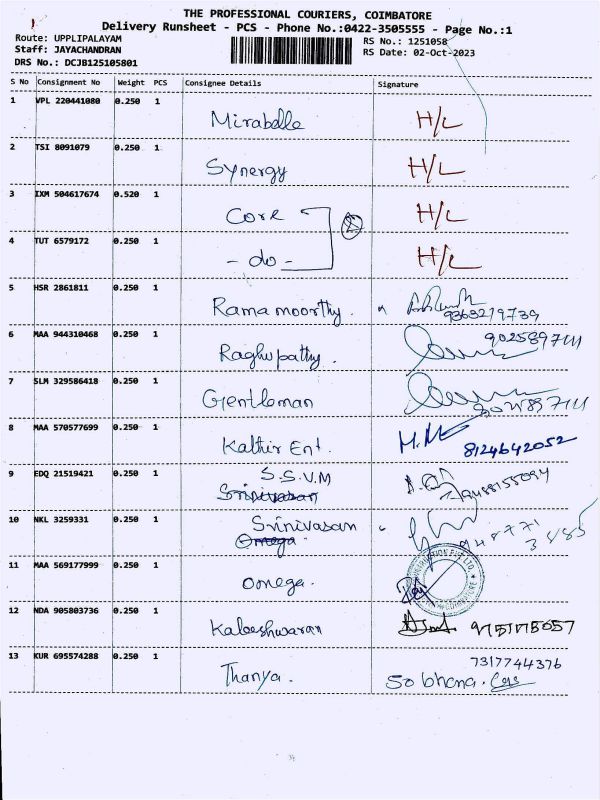 THE PROFESSIONAL COURIERS, COIMBATORE
Delivery Runsheet - PCS - Phone No.:0422-3505555 - Page No.:1
Route: UPPLIPALAYAM
Staff: JAYACHANDRAN
DRS No.: DCJB125105801
RS No.: 1251058
RS Date: 02-Oct-2023
S No Consignment No Weight PCS Consignee Details Signature
1 VPL 220441080 0.250 1
Mirabelle H/L
2 TSI 8091079 0.250 1
Synergy H/L
3 IXM 504617674 0.520 1
Core H/L
4 TUT 6579172 0.250 1
- do - H/L
5 HSR 2861811 0.250 1
Rama moorthy. 9363219739
6 MAA 944310468 0.250 1
Raghupathy. 9025897111
7 SLM 329586418 0.250 1
Gentleman 9025897111
8 MAA 570577699 0.250 1
Kathir Ent. 8124642052
9 EDQ 21519421 0.250 1
S.S.V.M
Srinivasan 9488155094
10 NKL 3259331 0.250 1
Srinivasan
Omega.
11 MAA 569177999 0.250 1
Omega.
12 NDA 905803736 0.250 1
Kaleeshwaran
13 KUR 695574288 0.250 1
7317744376
Thanya. Sobhana.